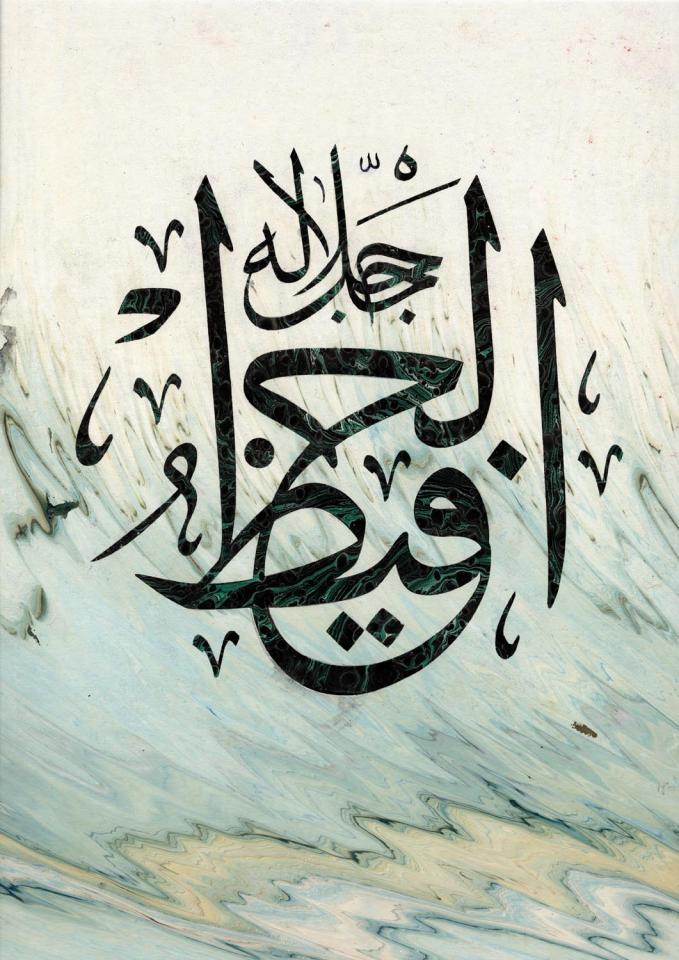 الحفيظ
جل جلاله